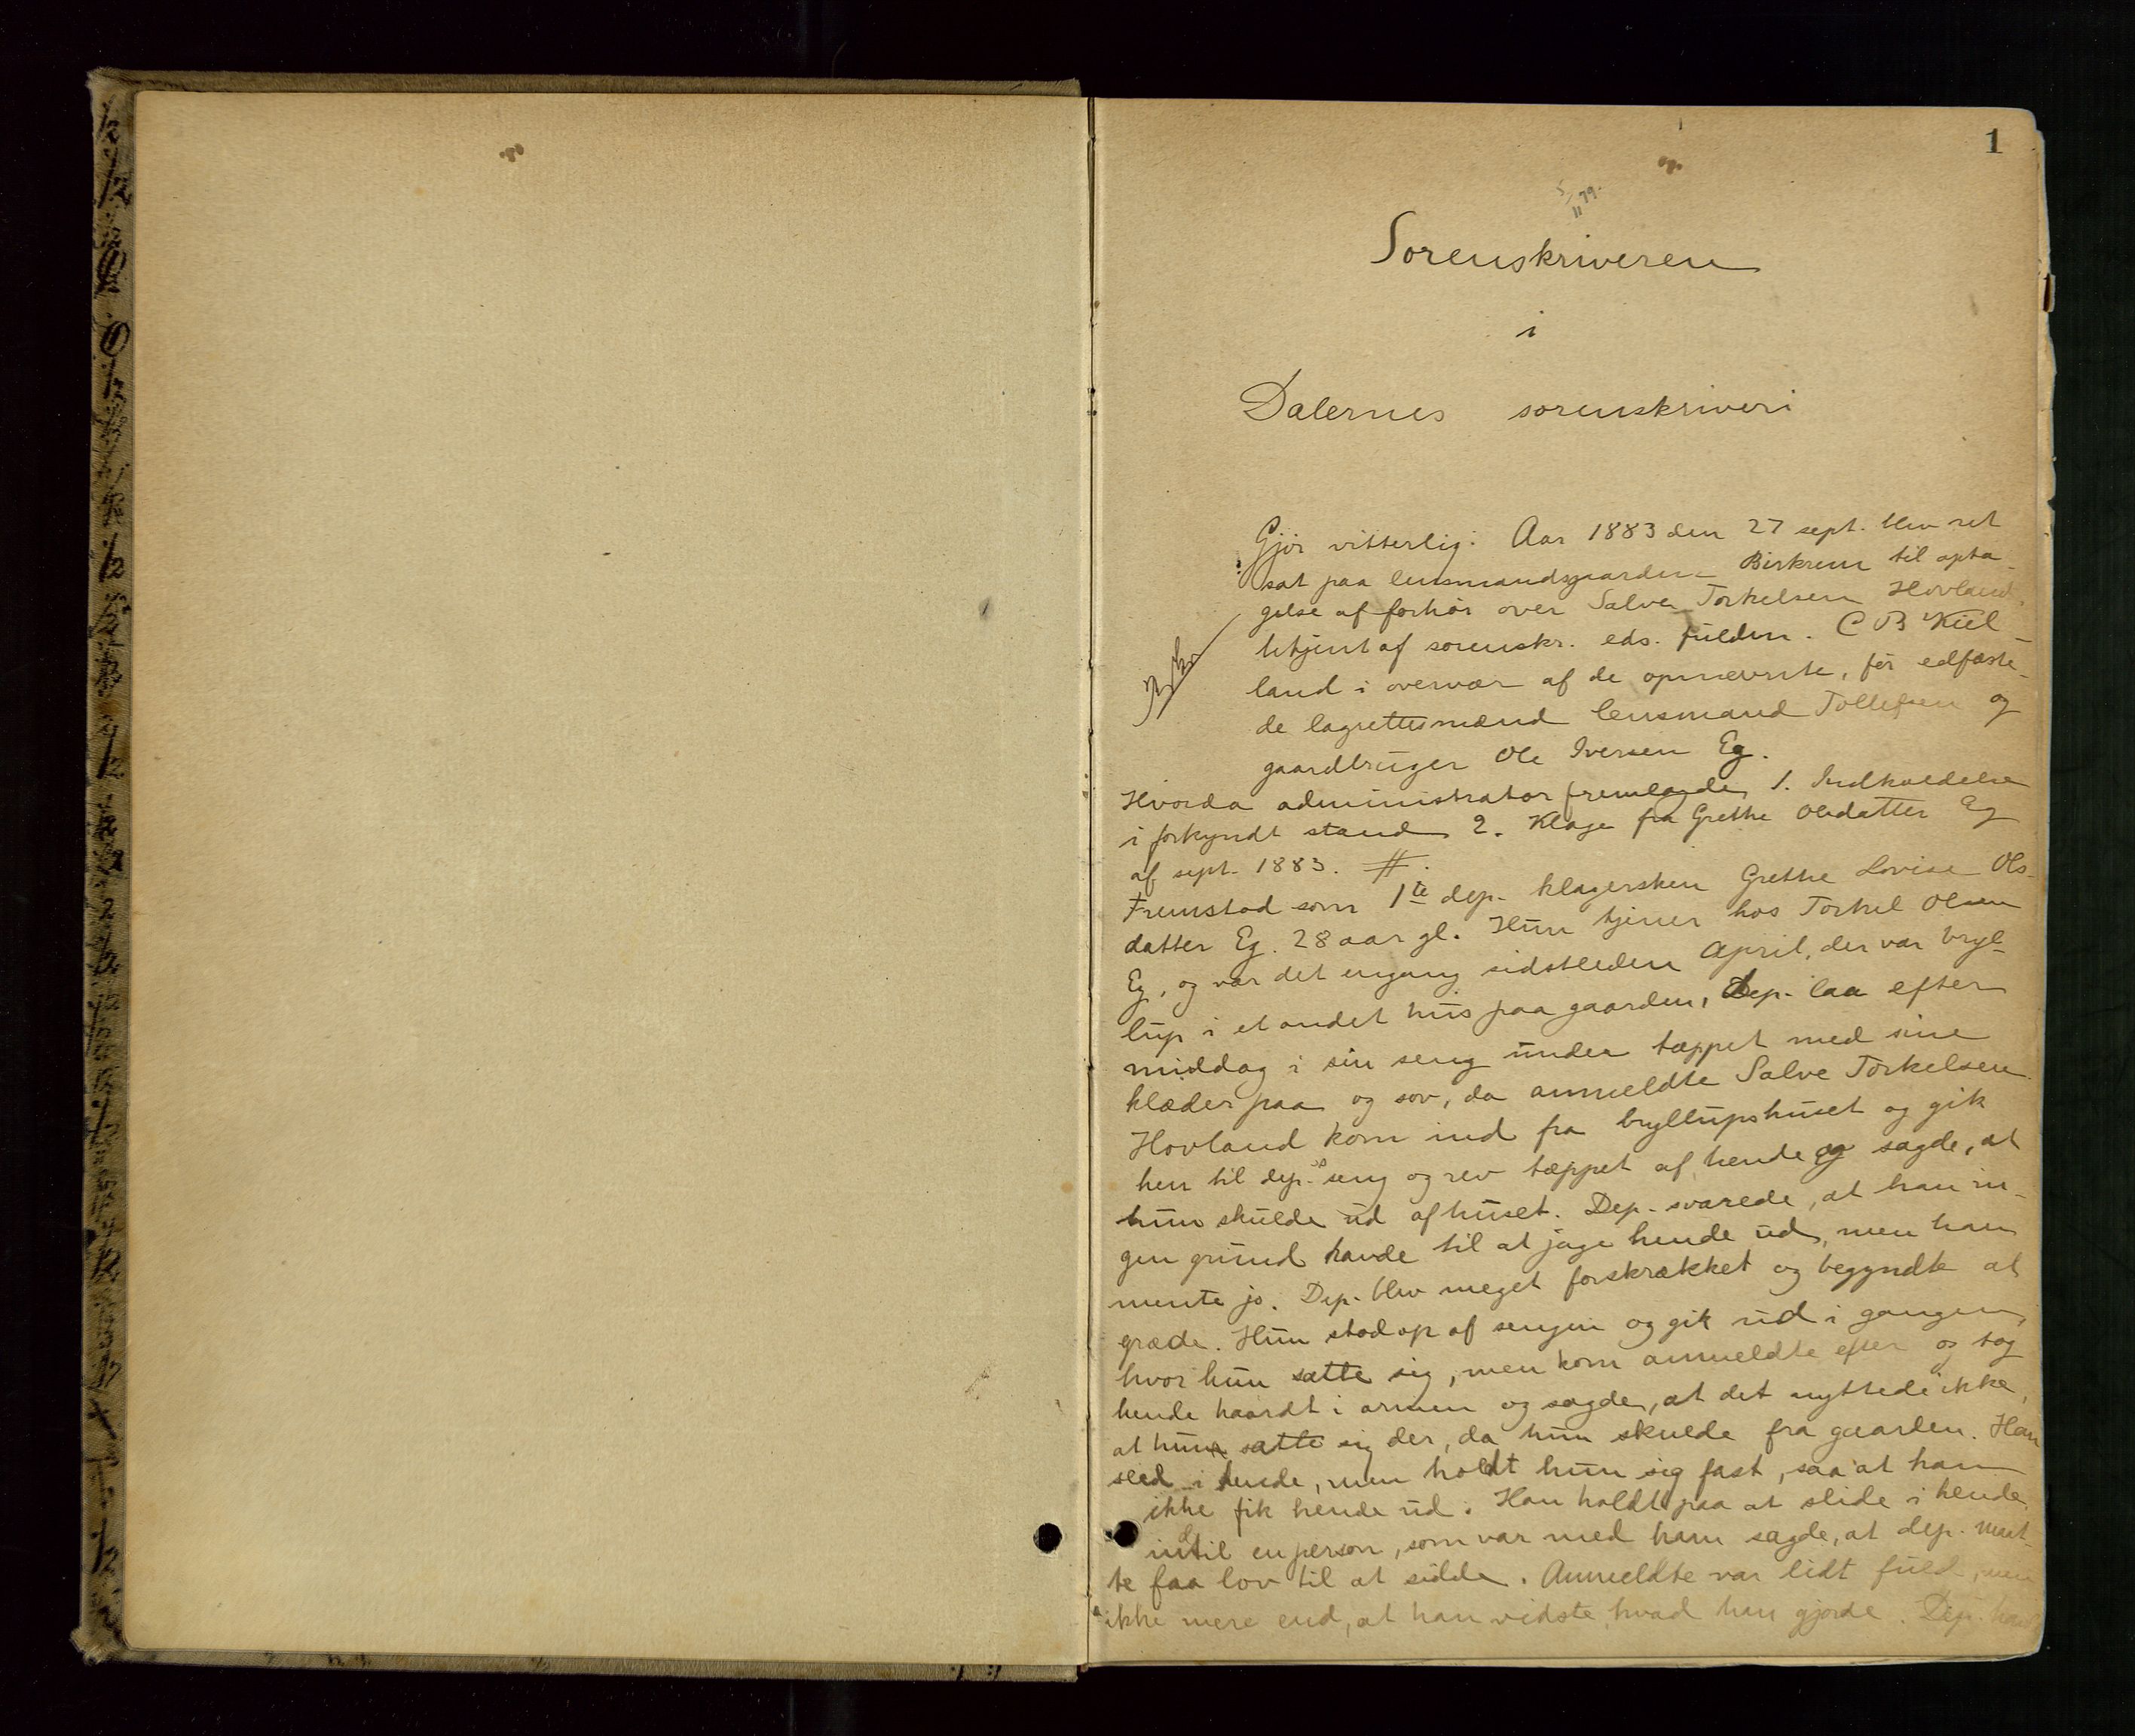 1
5/11 79.
Sorenskriveren
i
Dalernes sorenskriveri
Gjør vitterlig: Aar 1883 den 27 sept. blev ret
sat paa lensmandsgaarden Birkrem til opta-
gelse af forhør over Salve Torkelsen Hovland.
betjent af sorenskr. eds. fuldm. C B Kiel-
land i overvær af de opnævnte, før edfæste-
de lagrettesmænd lensmand Tollefsen og
gaardbruger Ole Iversen Eg.
Hvorda administrator fremlagde 1. Indkaldelse
i forkyndt stand 2. Klage fra Grethe Olsdatter Eg
af sept. 1883. #.
Fremstod som 1te dep. klagersken Grethe Lovise Ols-
datter Eg. 28 aar gl. Hun tjener hos Torkel Olsen
Eg, og var det engang sidstleden April, der var bryl-
lup i et andet hus paa gaarden, Dep. laa efter
middag i sin seng under tæppet med sine
klæder paa og sov, da anmeldte Salve Torkelsen
Hovland kom ind fra bryllupshuset og gik
hen til dep.s seng og rev tæppet af hende og sagde, at
hun skulde ud af huset. Dep. svarede, at han in-
gen grund havde til at jage hende ud, men han
mente jo. Dep. blev meget forskrækket og begyndte at
græde. Hun stod op af sengen og gik ud i gangen,
hvor hun satte sig, men kom anmeldte efter og tog
hende haardt i armen og sagde, at det nyttede ikke,
at hun satte sig der, da hun skulde fra gaarden. Han
sled i hende, men holdt hun sig fast, saa at han
ikke fik hende ud. Han holdt paa at slide i hende,
indtil en person, som var med ham sagde, at dep. maat-
te faa lov til at sidde. Anmeldte var lidt fuld, men
ikke mere end, at han vidste, hvad han gjorde. Dep. havd